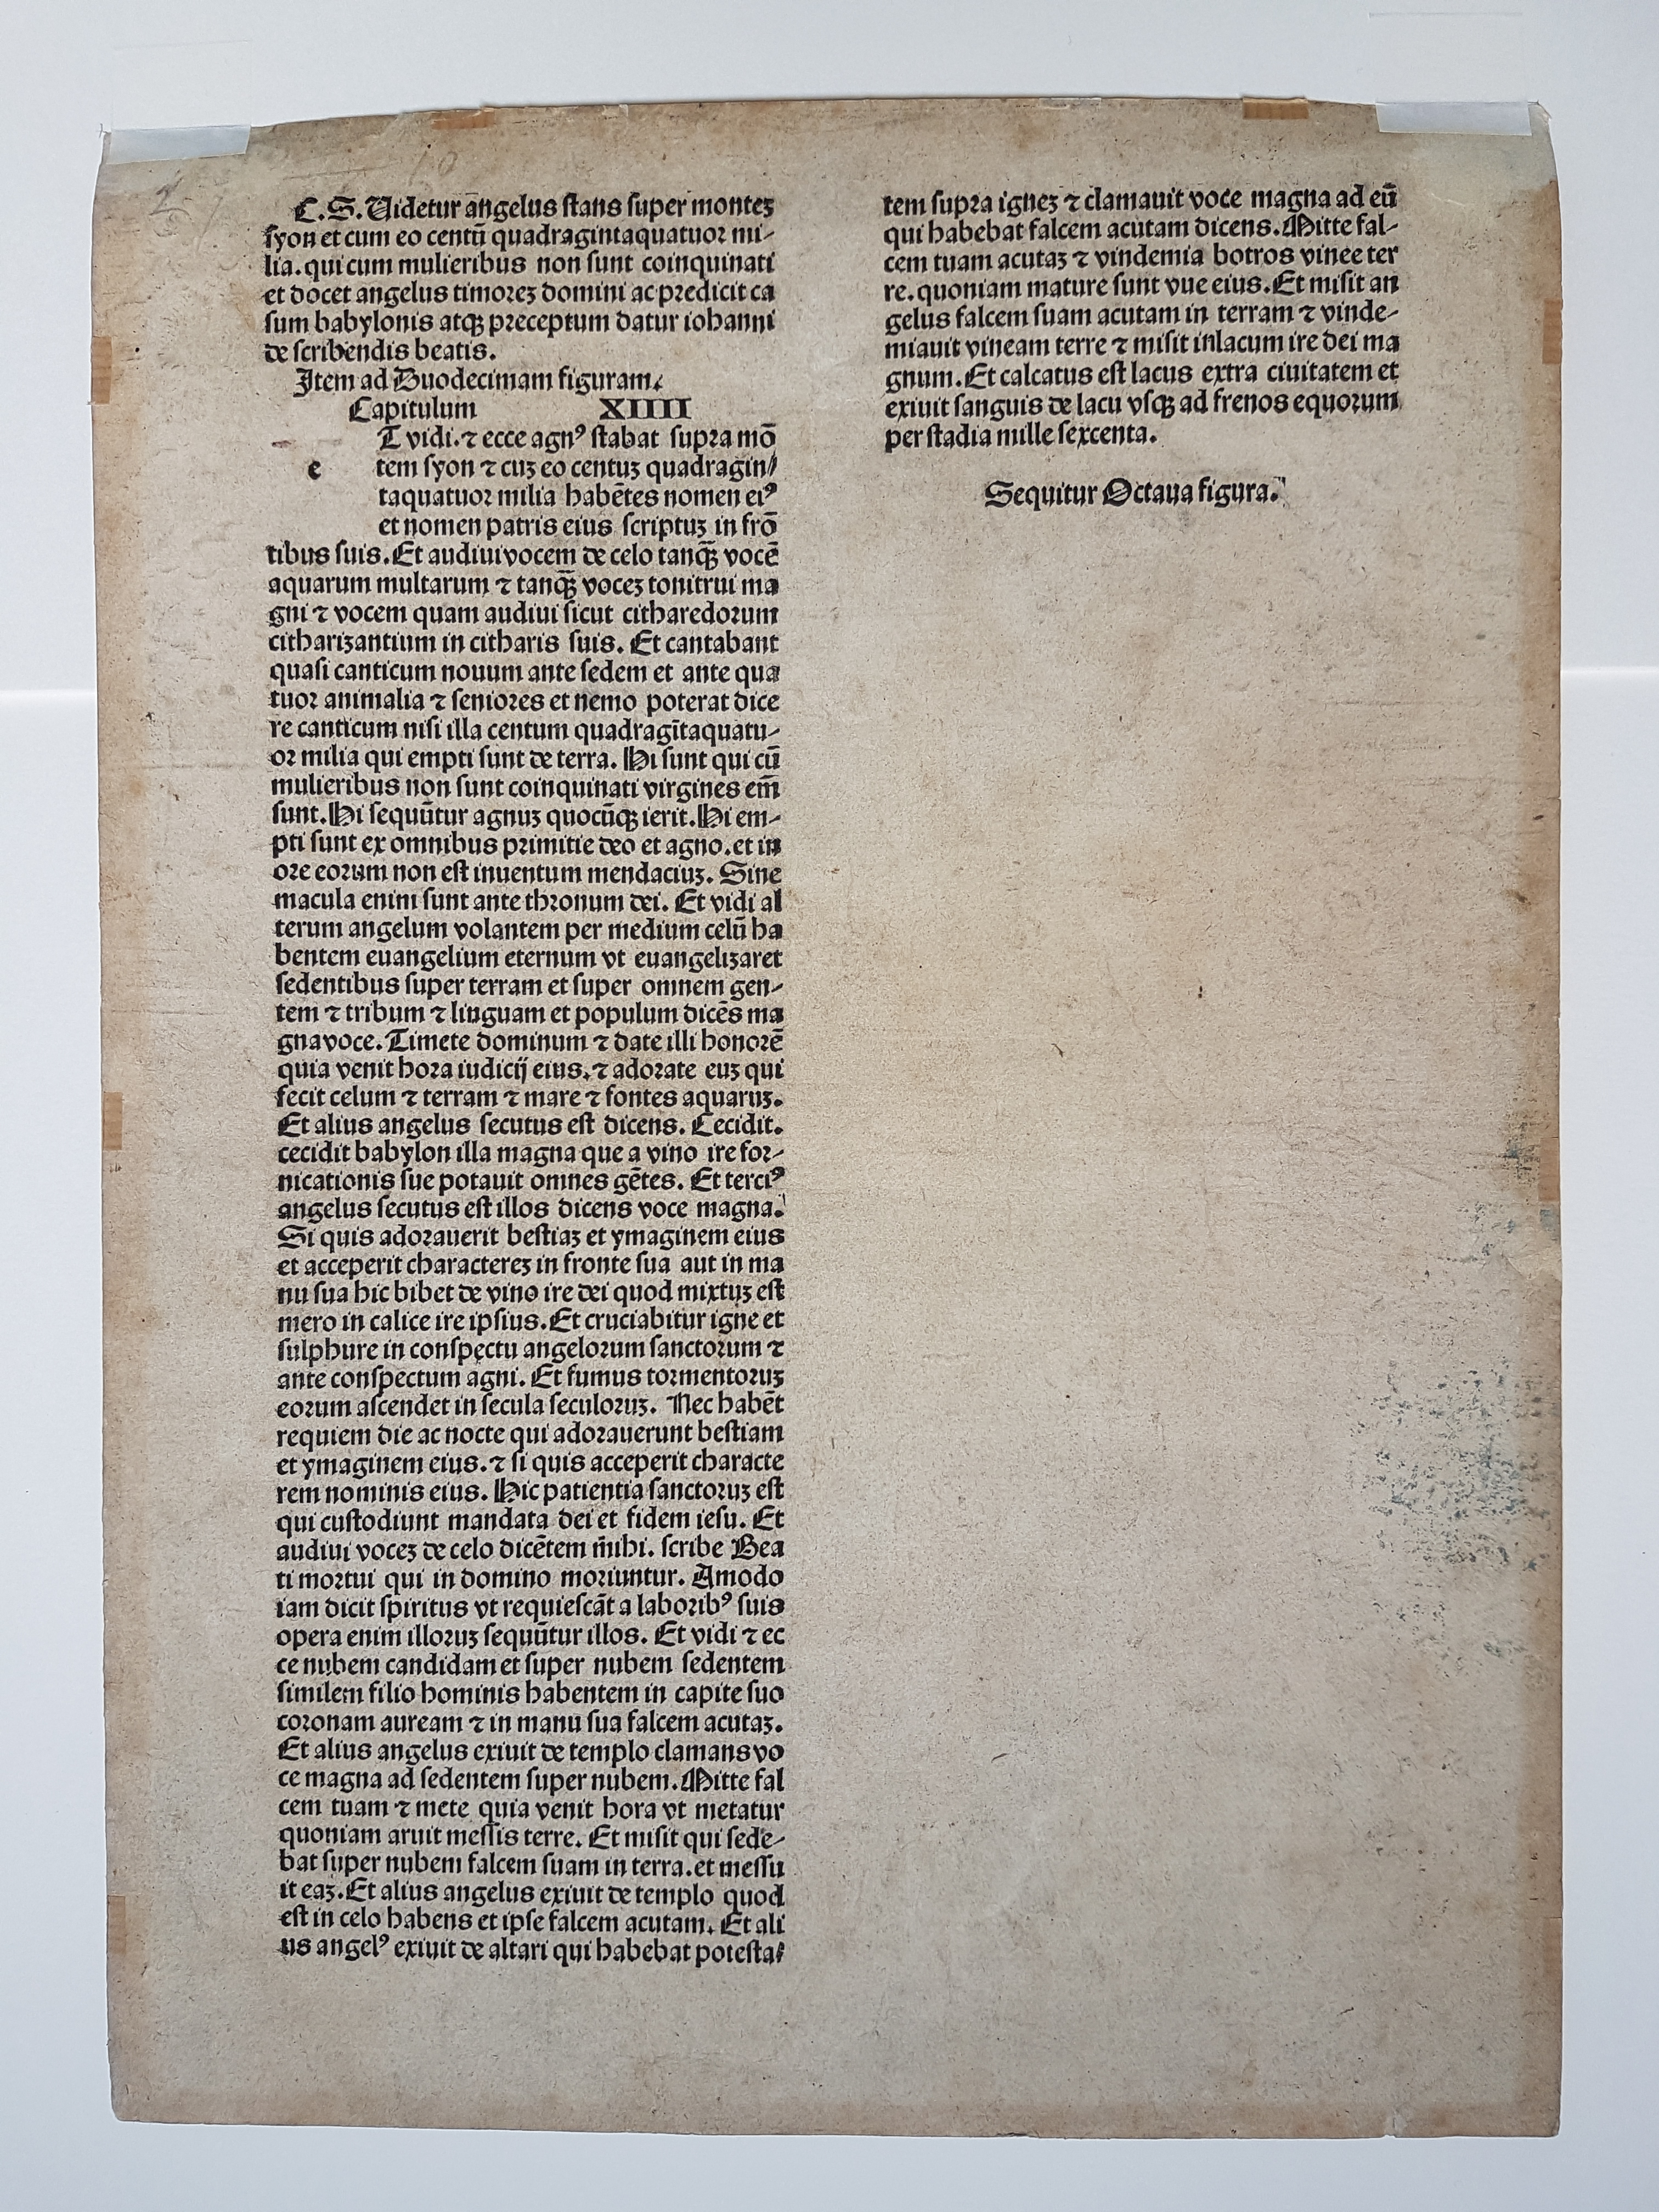 C.S.Uidetur angelus stans super montez
syon et cum eo centū quadragintaquatuor mi-
lia. qui cum mulieribus non sunt coinquinati
et docet angelus timorez domini ac predicit ca
sum babylonis atqꝫ preceptum datur iohanni
de scribendis beatis.
Item ad Duodecimam figuram.
Capitulum XIIII
T vidi. ⁊ ecce agnꝰ stabat supra mō
e tem syon ⁊ cuz eo centuz quadragin/
taquatuor milia habētes nomen eiꝰ
et nomen patris eius scriptuz in frō
tibus suis. Et audiui vocem de celo tanqꝫ vocē
aquarum multarum ⁊ tanqꝫ vocez tonitrui ma
gni ⁊ vocem quam audiui sicut citharedorum
citharizantium in citharis suis. Et cantabant
quasi canticum nouum ante sedem et ante qua
tuor animalia ⁊ seniores et nemo poterat dice
re canticum nisi illa centum quadragītaquatu-
or milia qui empti sunt de terra. Hi sunt qui cū
mulieribus non sunt coinquinati virgines em̄
sunt. Hi sequūtur agnuz quocūqꝫ ierit. Hi em-
pti sunt ex omnibus primitie deo et agno. et in
ore eorum non est inuentum mendaciuz. Sine
macula enim sunt ante thronum dei. Et vidi al
terum angelum volantem per medium celū ha
bentem euangelium eternum vt euangelizaret
sedentibus super terram et super omnem gen-
tem ⁊ tribum ⁊ linguam et populum dicēs ma
gna voce. Timete dominum ⁊ date illi honorē
quia venit hora iudicij eius. ⁊ adorate euz qui
fecit celum ⁊ terram ⁊ mare ⁊ fontes aquaruz.
Et alius angelus secutus est dicens. Cecidit.
cecidit babylon illa magna que a vino ire for-
nicationis sue potauit omnes gētes. Et terciꝰ
angelus secutus est illos dicens voce magna.
Si quis adorauerit bestiaz et ymaginem eius
et acceperit characterez in fronte sua aut in ma
nu sua hic bibet de vino ire dei quod mixtuz est
mero in calice ire ipsius. Et cruciabitur igne et
sulphure in conspectu angelorum sanctorum ⁊
ante conspectum agni. Et fumus tormentoruz
eorum ascendet in secula seculoruz. Nec habēt
requiem die ac nocte qui adorauerunt bestiam
et ymaginem eius. ⁊ si quis acceperit characte
rem nominis eius. Hic patientia sanctoruz est
qui custodiunt mandata dei et fidem iesu. Et
audiui vocez de celo dicētem m̄ihi. scribe Bea
ti mortui qui in domino moriuntur. Amodo
iam dicit spiritus vt requiescāt a laboribꝰ suis
opera enim illoruz sequūtur illos. Et vidi ⁊ ec
ce nubem candidam et super nubem sedentem
similem filio hominis habentem in capite suo
coronam auream ⁊ in manu sua falcem acutaz.
Et alius angelus exiuit de templo clamans vo
ce magna ad sedentem super nubem. Mitte fal
cem tuam ⁊ mete quia venit hora vt metatur
quoniam aruit messis terre. Et misit qui sede-
bat super nubem falcem suam in terra. et messu
it eaz. Et alius angelus exiuit de templo quod
est in celo habens et ipse falcem acutam. Et ali
us angelꝰ exiuit de altari qui habebat potesta/
tem supra ignez ⁊ clamauit voce magna ad eū
qui habebat falcem acutam dicens. Mitte fal-
cem tuam acutaz ⁊ vindemia botros vinee ter
re. quoniam mature sunt vue eius. Et misit an
gelus falcem suam acutam in terram ⁊ vinde-
miauit vineam terre ⁊ misit in lacum ire dei ma
gnum. Et calcatus est lacus extra ciuitatem et
exiuit sanguis de lacu vsqꝫ ad frenos equorum
per stadia mille sexcenta.
Sequitur Octaua figura.